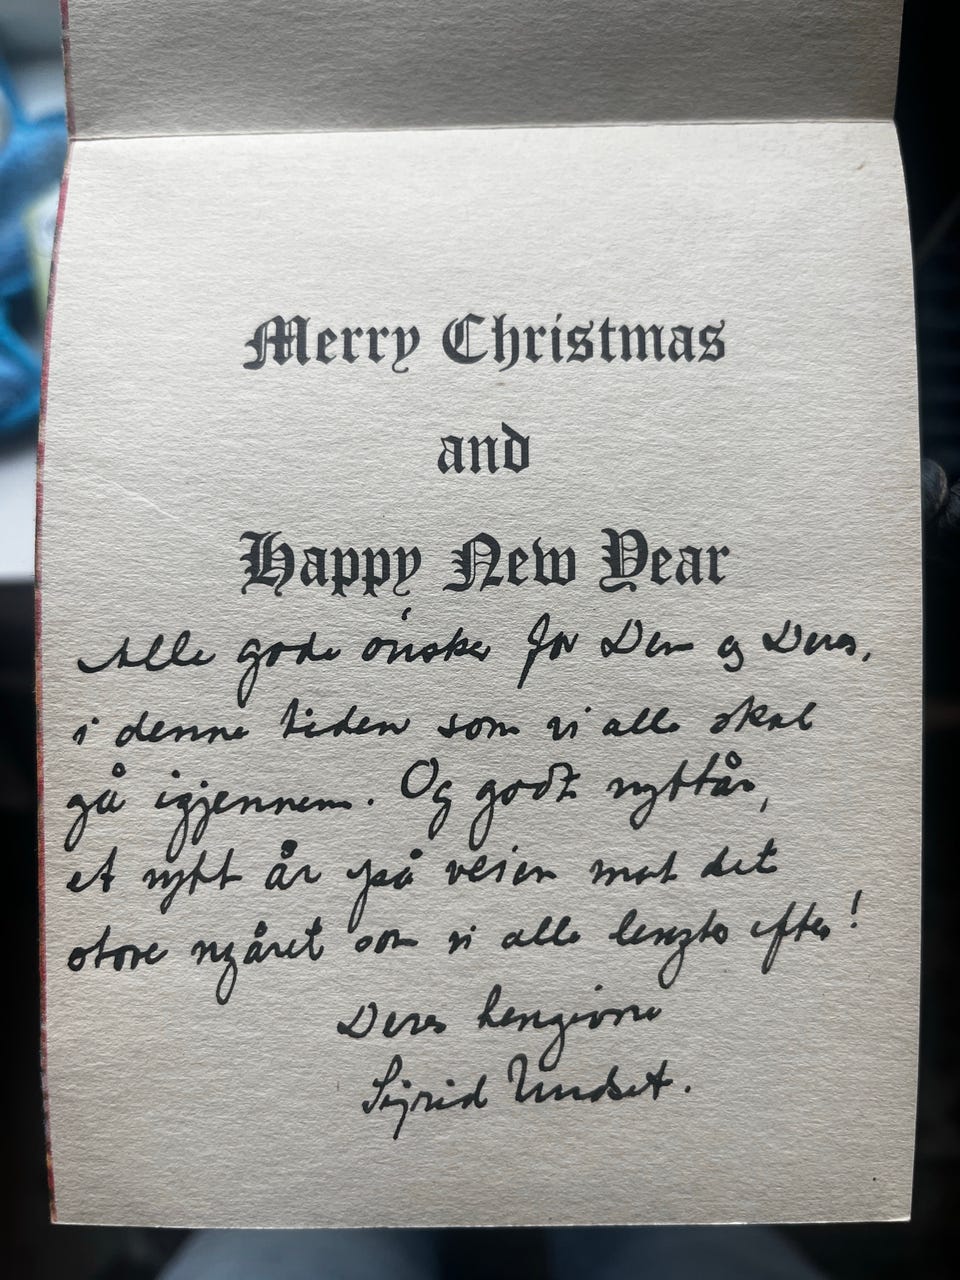 Merry Christmas
and
Happy New Year
Alle gode önsker for Dem og Deres,
i denne tiden som vi alle skal
gå igjennem. Og godt nyttår,
et nytt år på veien mot det
store nyåret som vi alle lengter efter!
Deres hengivne
Sigrid Undset.